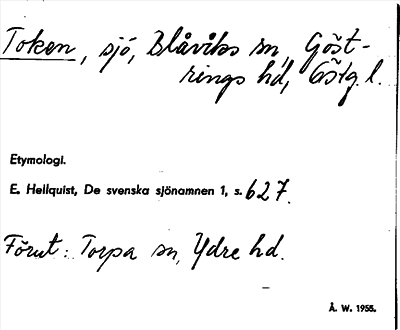 Token, sjö, Blåviks sn, Göst-
rings hd, Östg.l.
Etymologi.
E. Hellquist, De svenska sjönamnen 1, s. 627.
Förut: Torpa sn, Ydre hd.
Å. W. 1955.